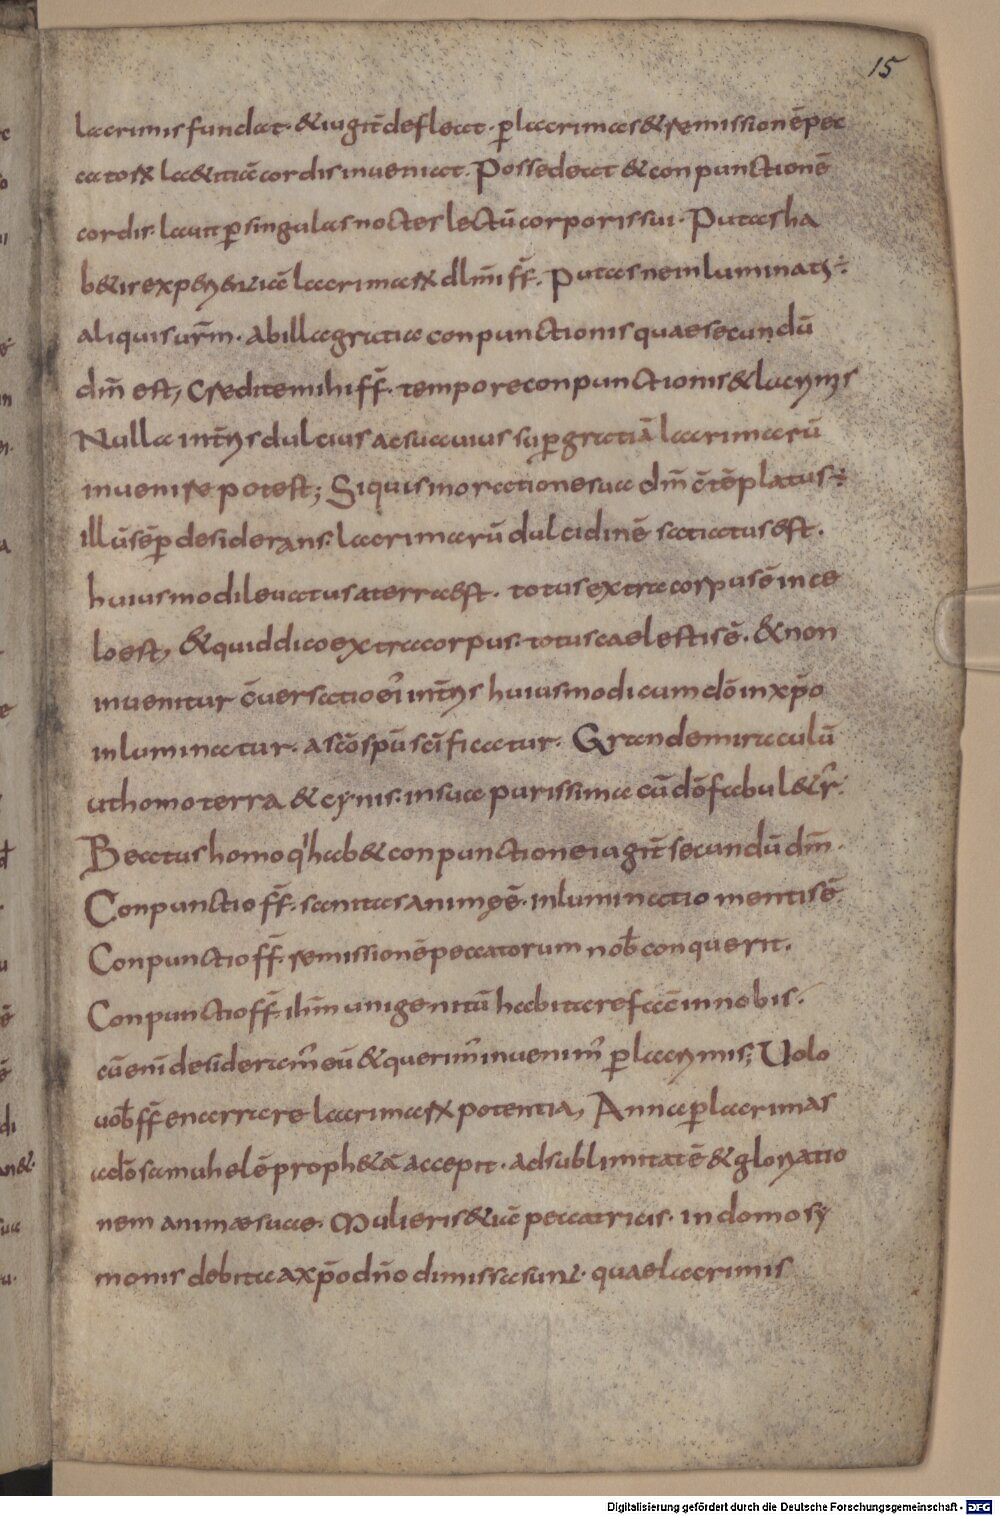 15
lacrimis fundat. & iugit̄ defleat. ꝑ lacrimas & remissionē pec
catoꝝ laetitiā cordis inueniat. Possedeat & conpunctionē
cordis. lauit ꝑ singulas noctes lectū corporis sui. Putas ha
b&is experientiā lacrimaꝝ dl̄mi ff̄. Putas neinluminatꝫ÷
aliquis ur̄m. ab illa gratia conpunctionis quae secundū
dm̄ est, Credite mihi ff̄. tempore conpunctionis & lacrymis
Nulla int̄ris dulcius ac suauius suꝑ gratiā lacrimarū
inuenire potest; Si quis in oratione sua dm̄ c̄tēplatus÷
illū sēꝑ desiderans. lacrimarū dulcidinē satiatus est.
huiusmodi leuatus a terra est. totus extra corpus ē in ce
lo est, & quid dico extra corpus. totus caelestis ē. & non
inuenitur c̄uersatio ei' int̄ris huiusmodi cum dō in xp̄o
inluminatur. a sc̄o sp̄u sc̄ificatur. Grande miraculū
ut homo terra & cynis. in sua purissima cū dō fabul&ur.
Beatus homo q' hab& conpunctione iugit̄ secundū dm̄.
Conpunctio ff̄. sanitas animę ē. inluminatio mentis ē.
Conpunctio ff̄. remissionē peccatorum nob̄ conquerit.
Conpunctio ff̄. ihm̄ unigenitū habitare facē in nobis.
cū eni desideram' eū & querim' inuenim' ꝑ lacrymis; Uolo
uob̄ ff̄ enarrare lacrimaꝝ potentia, Anna ꝑ lacrimas
ad dō samuhelē proph&ā accepit. ad sublimitatē & gloriatio
nem animae suae. Mulieris &iā peccatricis. in domo sy
monis debita a xp̄o dn̄o dimissa sunt. quae lacrimis
Digitalisierung gefördert durch die Deutsche Forschungsgemeinschaft - DFG